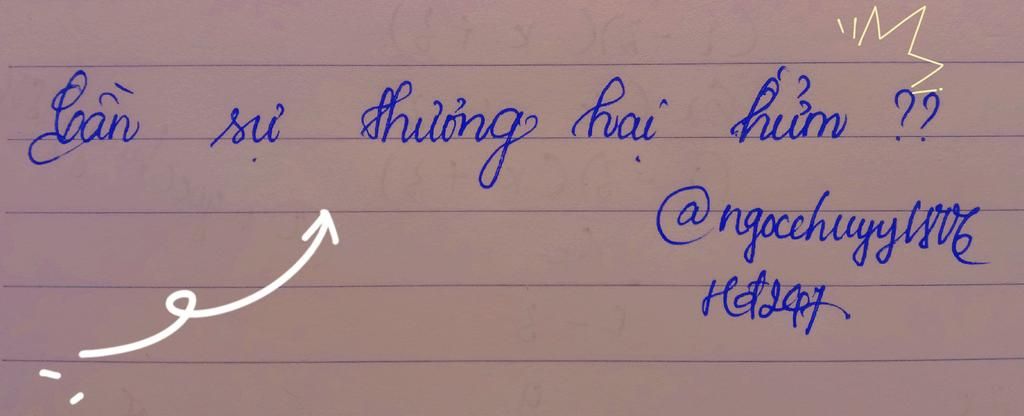 Cần sự thưởng hại hửm ??
@ngocchuyy1806